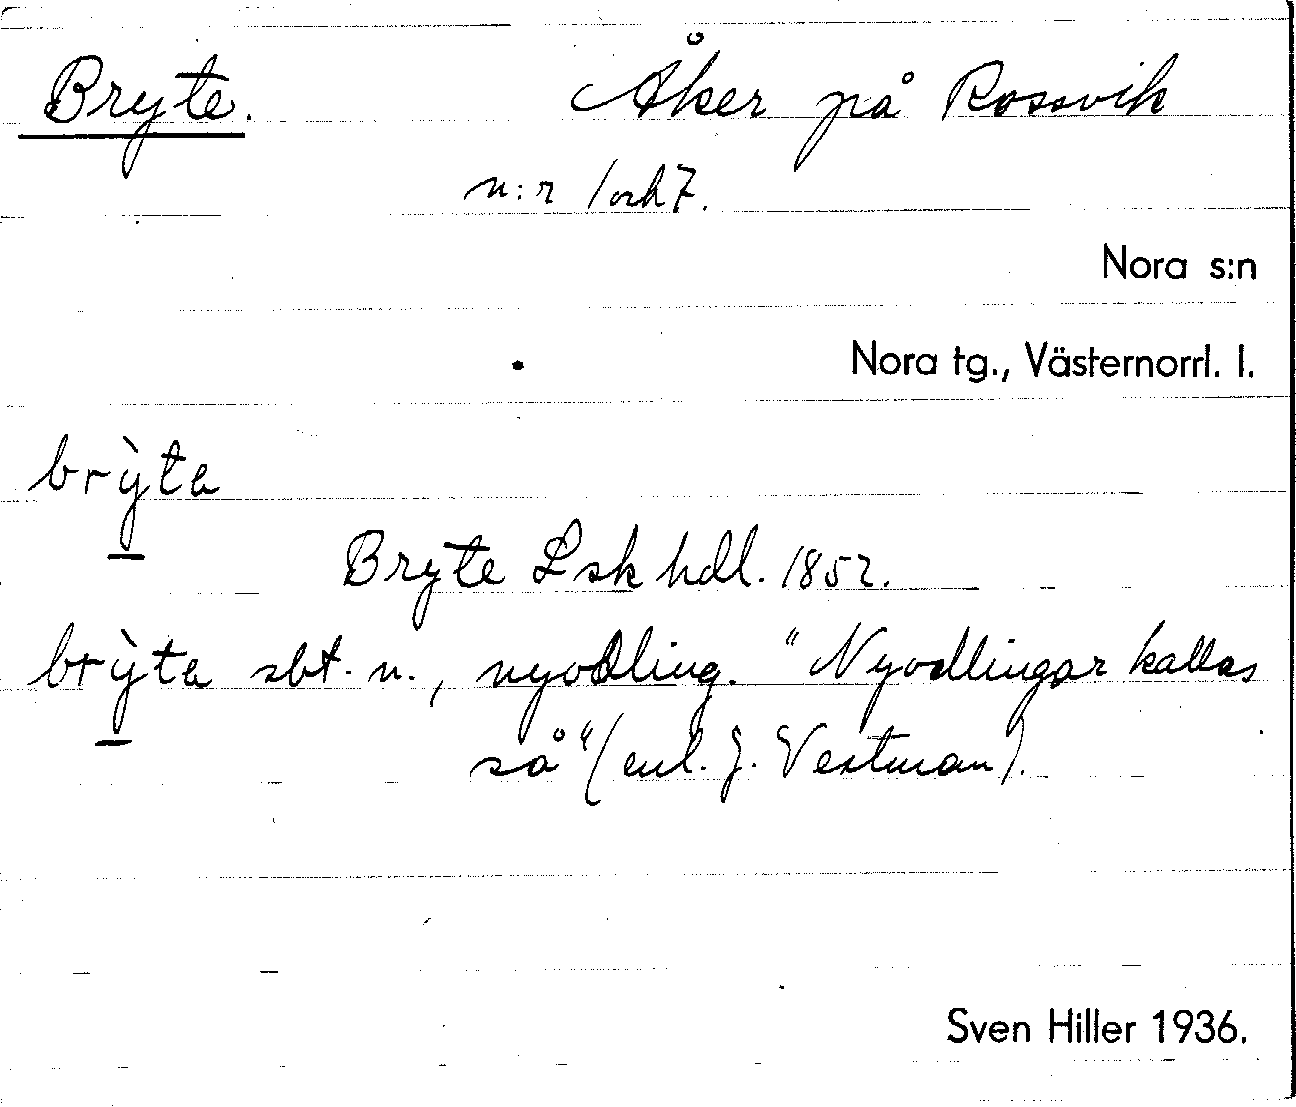 Bryte. Åker på Rossvik
n:r 1 och 7.
Nora s:n
Nora tg., Västernorrl. l.
brỳta
Bryte Lsk hdl. 1852.
brỳta sbt. n., nyodling. "Nyodlingar kallas
så" (enl. J. Vestman).
Sven Hiller 1936.